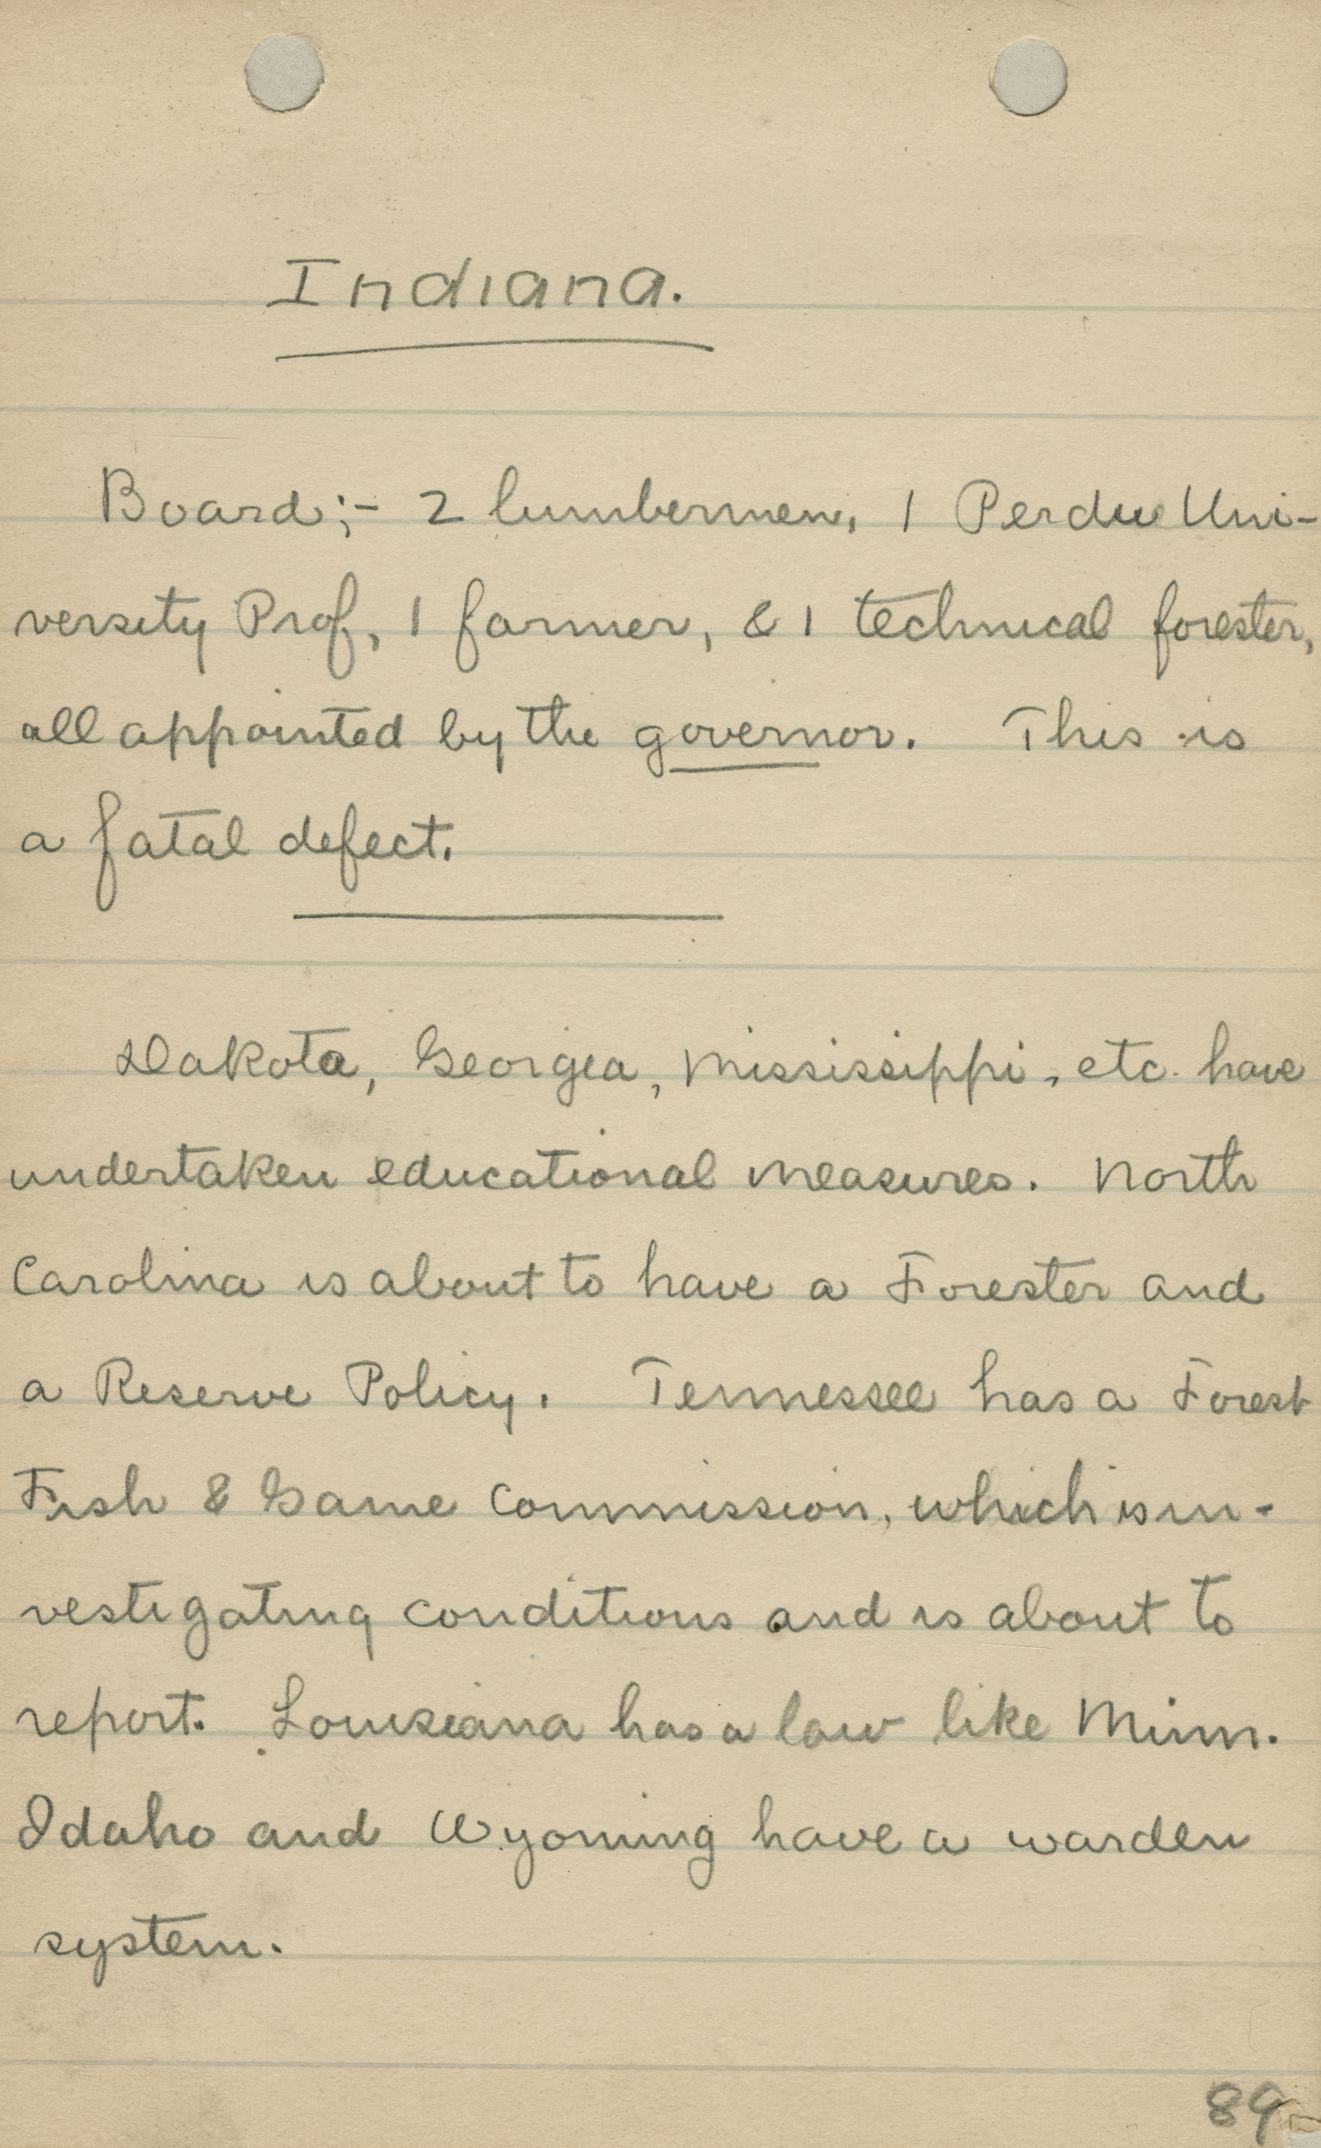 Indiana.
Board;- 2 lumbermen, 1 Perdue Uni-
versity Prof, 1 farmer, & 1 technical forester,
all appointed by the governor. This is
a fatal defect.
Dakota, Georgia, Mississippi, etc. have
undertaken educational measures. North
Carolina is about to have a Forester and
a Reserve Policy. Tennessee has a Forest
Fish & Game Commission, which is in-
vestigating conditions and is about to
report. Louisiana has a law like Minn.
Idaho and Wyoming have a warden
system.
89